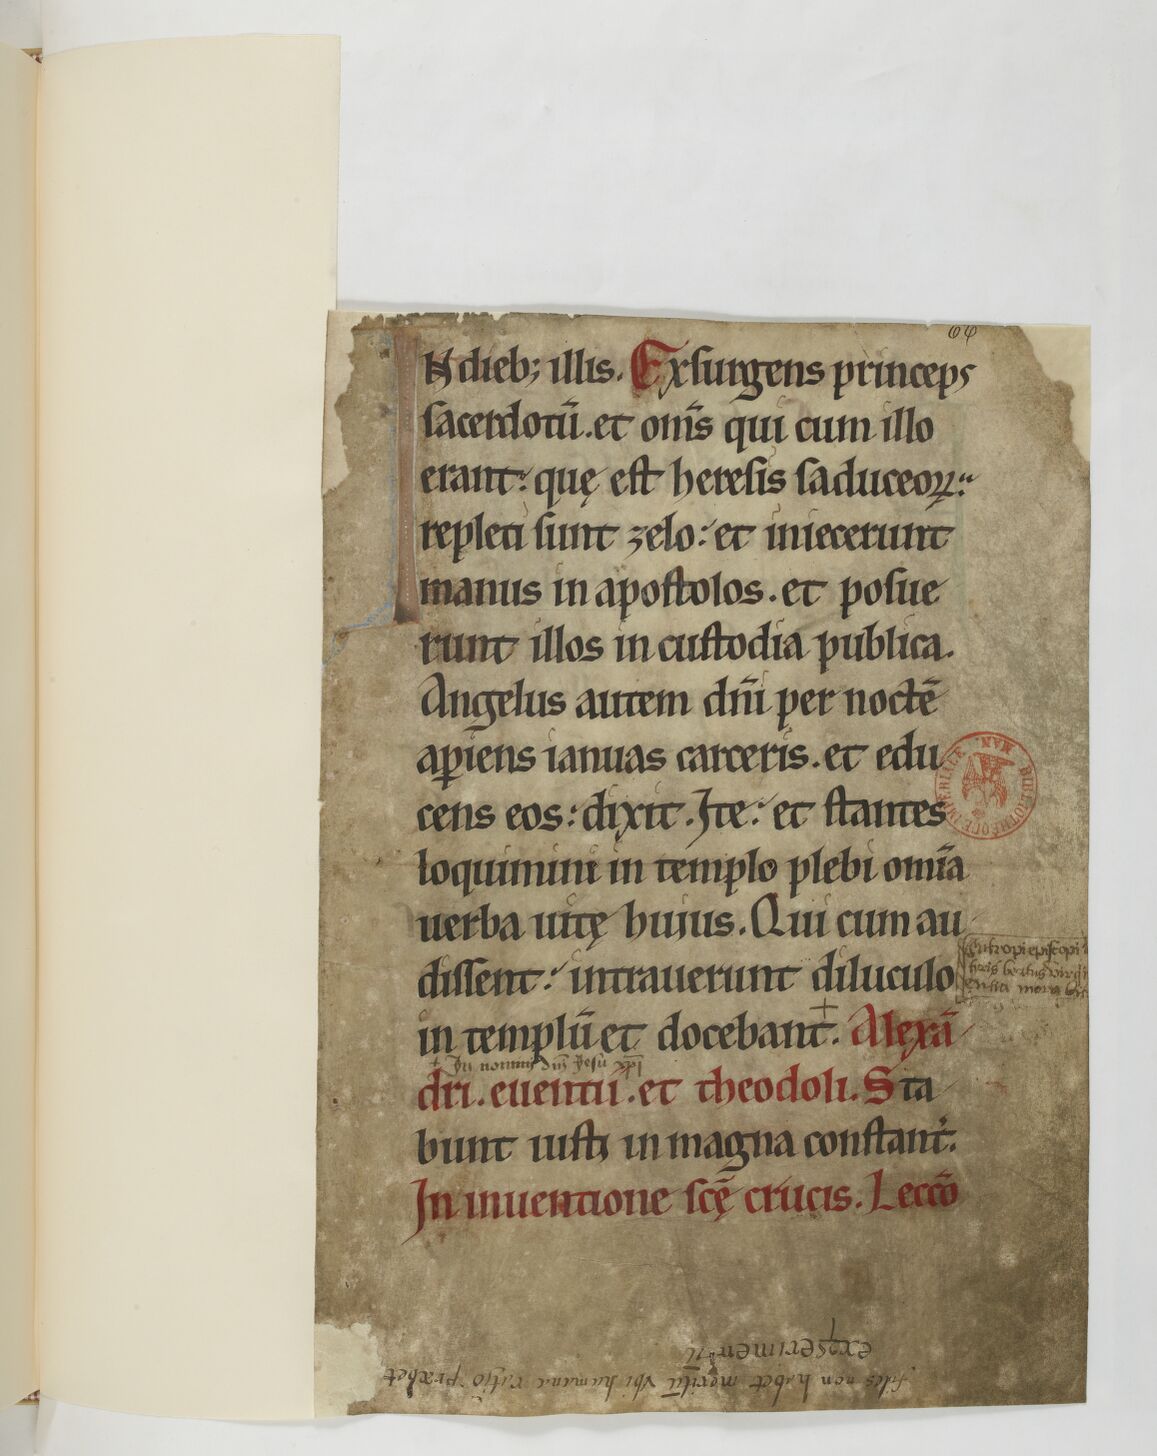 66
IN dieb; illis. Exsurgens princeps
sacerdotū. et om̄s qui cum illo
erant: quę est heresis saduceoꝝ:
repleti sunt zelo: et iniecerunt
manus in apostolos. et posue
runt illos in custodia publica.
Angelus autem dn̄i per noctē
aꝑiens ianuas carceris. et edu
cens eos: dixit. Ite: et stantes
loquimini in templo plebi om̄ia
uerba uitę hujus. Qui cum au
dissent: intrauerunt diluculo
Eutropi episcopi
in templū et docebant. Alexā
+ In nomine dn̄i Jesu xp̄i
dri. euentii. et theodoli. Sta
bunt iusti in magna constant.
In inuentione scę̄ crucis. Leccō
BIBLIOTHEQUE IMPERIALE MAN.
fides non habet meritū vbi humana ratio præbet
experimentū